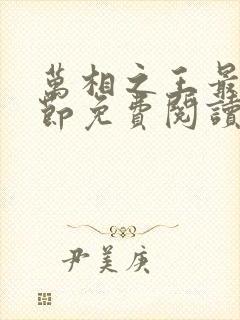 萬相之王最
節免費閱讀
尹美庚